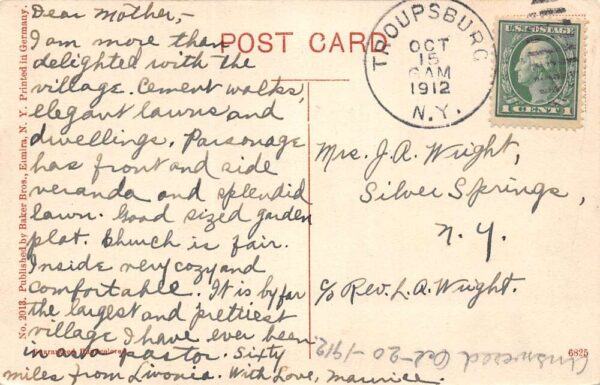 Dear Mother,-
I am more than
delighted with the
village. Cement walks,
elegant lawns and
dwellings. Parsonage
has front and side
veranda and splendid
lawn. Good sized garden
plot. Church is fair.
Inside very cozy and
comfortable. It is by far
the largest and prettiest
village I have ever been
in as a pastor. Sixty
miles from Livonia. With Love, Maurice.
POST CARD
TROUPSBURG
OCT
15
6 AM
1912
N.Y.
U.S. POSTAGE
1 CENT 1
Mrs. J. A. Wright,
Silver Springs,
N. Y.
c/o Rev. L. A. Wright.
Answered Oct-20-1912
6825
No. 2013. Published by Baker Bros., Elmira, N. Y. Printed in Germany.